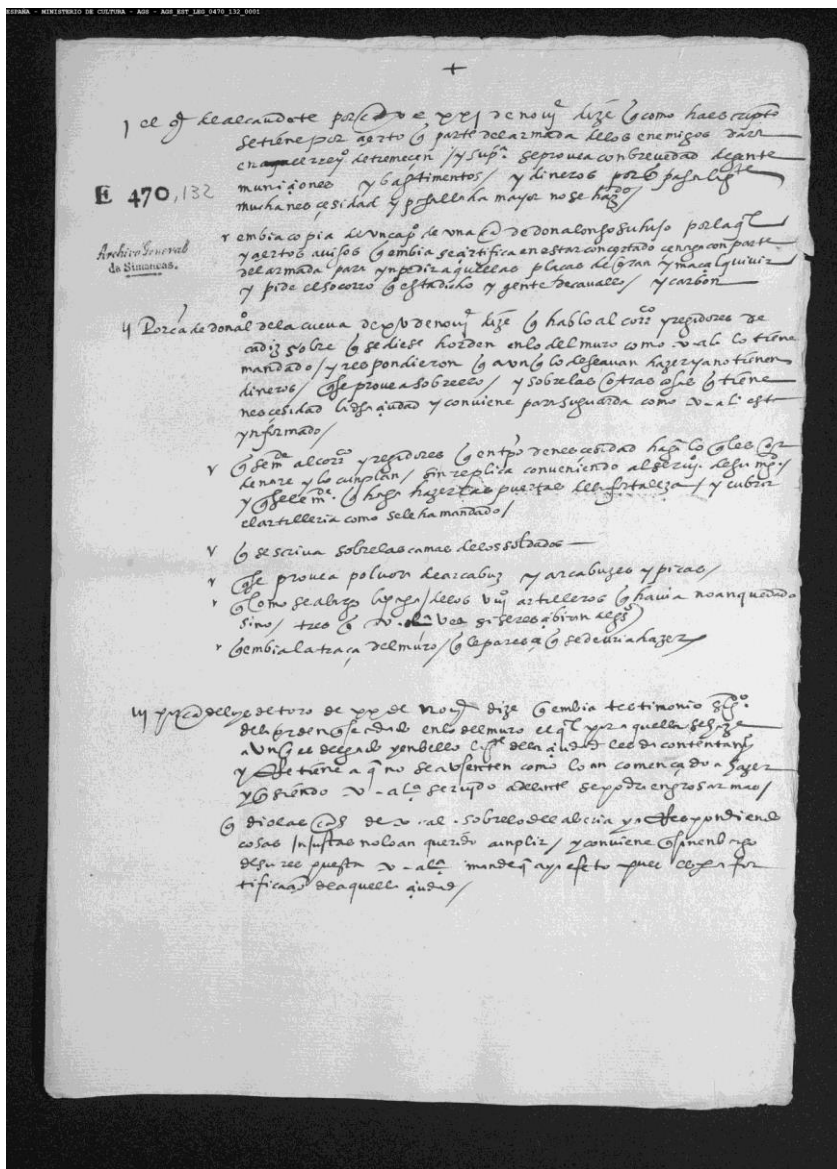 ESPAÑA - MINISTERIO DE CULTURA - AGS - AGS_EST_LEG_0470_132_0001
+
j el q̄ᵈ de alcaudete por cᵃ de xxj de novⁱ dize q̄ como ha escripto
se tiene por çierto q̄ parte del armada de los enemigos dara
en rey de tremecen / y supᶜᵃ se provea con brevedad de gente
E 470,132
muniçiones y bastimentos / y dineros porq̄ pasa la gente
mucha neçesidad y por falta ha mayor no se haga /
Archivo General
de Simancas.
v embia copia de un capᵒ de una cᵃ de don alonso su hijo por la ql
y çiertos avisos q̄ embia se çertifica en estar conçertado venga con parte
del armada para ynpedir aquellas plaças de oran y maçalquivir
y pide el socorro q̄ esta dicho y gente de cavallo / y carbon
ij Por cᵃ de don alᵒ de la cueva de xv de novⁱ dize q̄ hablo al corrᵒʳ y regidores de
cadiz sobre q̄ se diese horden en lo del muro como v. al. lo tiene
mandado / y respondieron q̄ aunq̄ lo deseavan hazer ya no tienen
dineros / q̄ se provea sobre ello / y sobre las otras cosas q̄ tiene
neçesidad la dha çiudad y conviene para su guarda como v. al. est
ynformado /
v q̄ se mᵈᵉ al corrᵒʳ y regidores q̄ en tpᵒ de neçesidad hagā lo q̄ les or
denare y lo cunplan / sin replica conveniendo al serviᵒ de su mgᵗ /
y q̄ se le mᵈᵉ q̄ haga hazer las puertas de la fortaleza / y cubrir
el artilleria como se le ha mandado /
v q̄ se scriva sobre las camas de los soldados
v q̄ se provea polvora de arcabuz y arcabuzes y picas /
v q̄ como se alargo la paga / de los viijᵒ artilleros q̄ havia no an quedado
sino / tres q̄ v. alᵃ vea si se resçibiran algᵒˢ
v q̄ embia la traça del muro / q̄ le pareçe q̄ se devria hazer
iij por cᵃ del de toro de xx de novⁱ dize q̄ embia testimonio sigᵈᵒ
de la orden q̄ se a dado en lo del muro el ql por aquella se haze
aunq̄ es delgado y en bello la gᵗᵉ de la çiudad
y detiene a q̄ no se absenten como lo an començado a hazer
y q̄ siendo v. alᵃ servido adelante se podra engrosar mas /
q̄ dio las cᵃˢ de v. al. sobre lo del alcria y respondiendo
cosas injustas no lo an querido cunplir / y conviene q̄ sin enbargo
de su respuesta v. alᵃ mande q̄ aya efeto pues es para for
tificaçᵒⁿ de aquella çiudad /